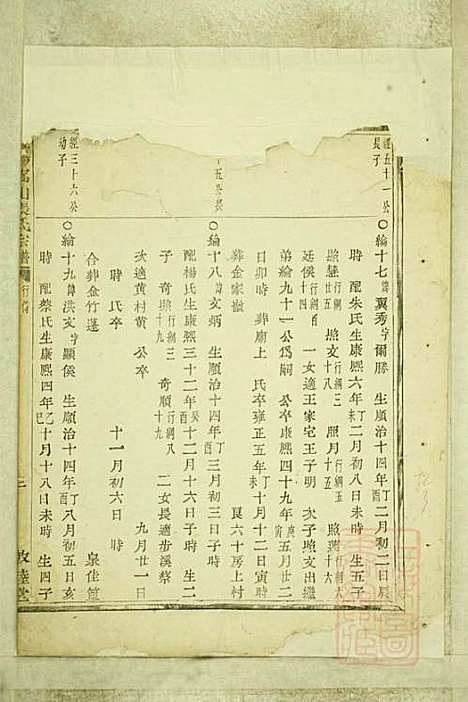 經五十一公
長子
綸十七 諱翼秀字爾勝 生順治十四年丁酉二月初二日辰
時 配朱氏生康熙六年丁未二月初八日未時 生五子
照慧行綱五廿五 照文行綱三十八 照月行綱五十一 照瑞行綱十六
廷侯行綱十四 一女適王家宅王子明 次子照文出繼
弟綸九十一公爲嗣 公卒康熙四十九年庚寅五月廿二
日卯時 葬廟上 氏卒雍正五年丁未十月十二日寅時
葬金家 艮六十房上村
五公長
綸十八 諱文炳 生順治十四年丁酉三月初三日子時
配楊氏生康熙三十二年癸酉十二月十六日子時 生二
子 奇照行綱三十九 奇順行綱八十九 二女長適步溪蔡
次適黄村黄 公卒 九月廿一日
時 氏卒 十一月初六日 時
合葬金竹蓬 泉佳
經三十六公
幼子
綸十九 諱洪文字顯侯 生順治十四年丁酉八月初五日亥
時 配蔡氏生康熙四年乙巳十月十八日未時 生四子
山張氏宗譜 行
敦睦堂